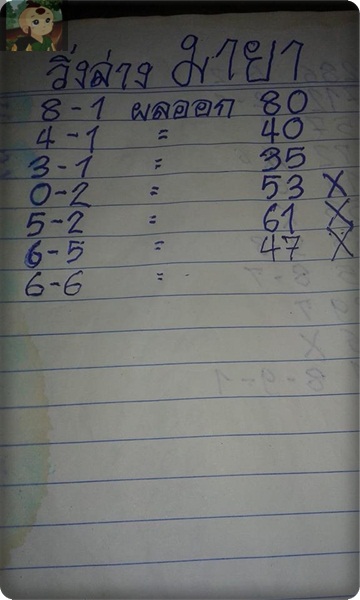 วิ่งล่าง มายา
8-1 ผลออก 80
4-1 = 40
3-1 = 35
0-2 = 53 X
5-2 = 61 X
6-5 = 47 X
6-6 =